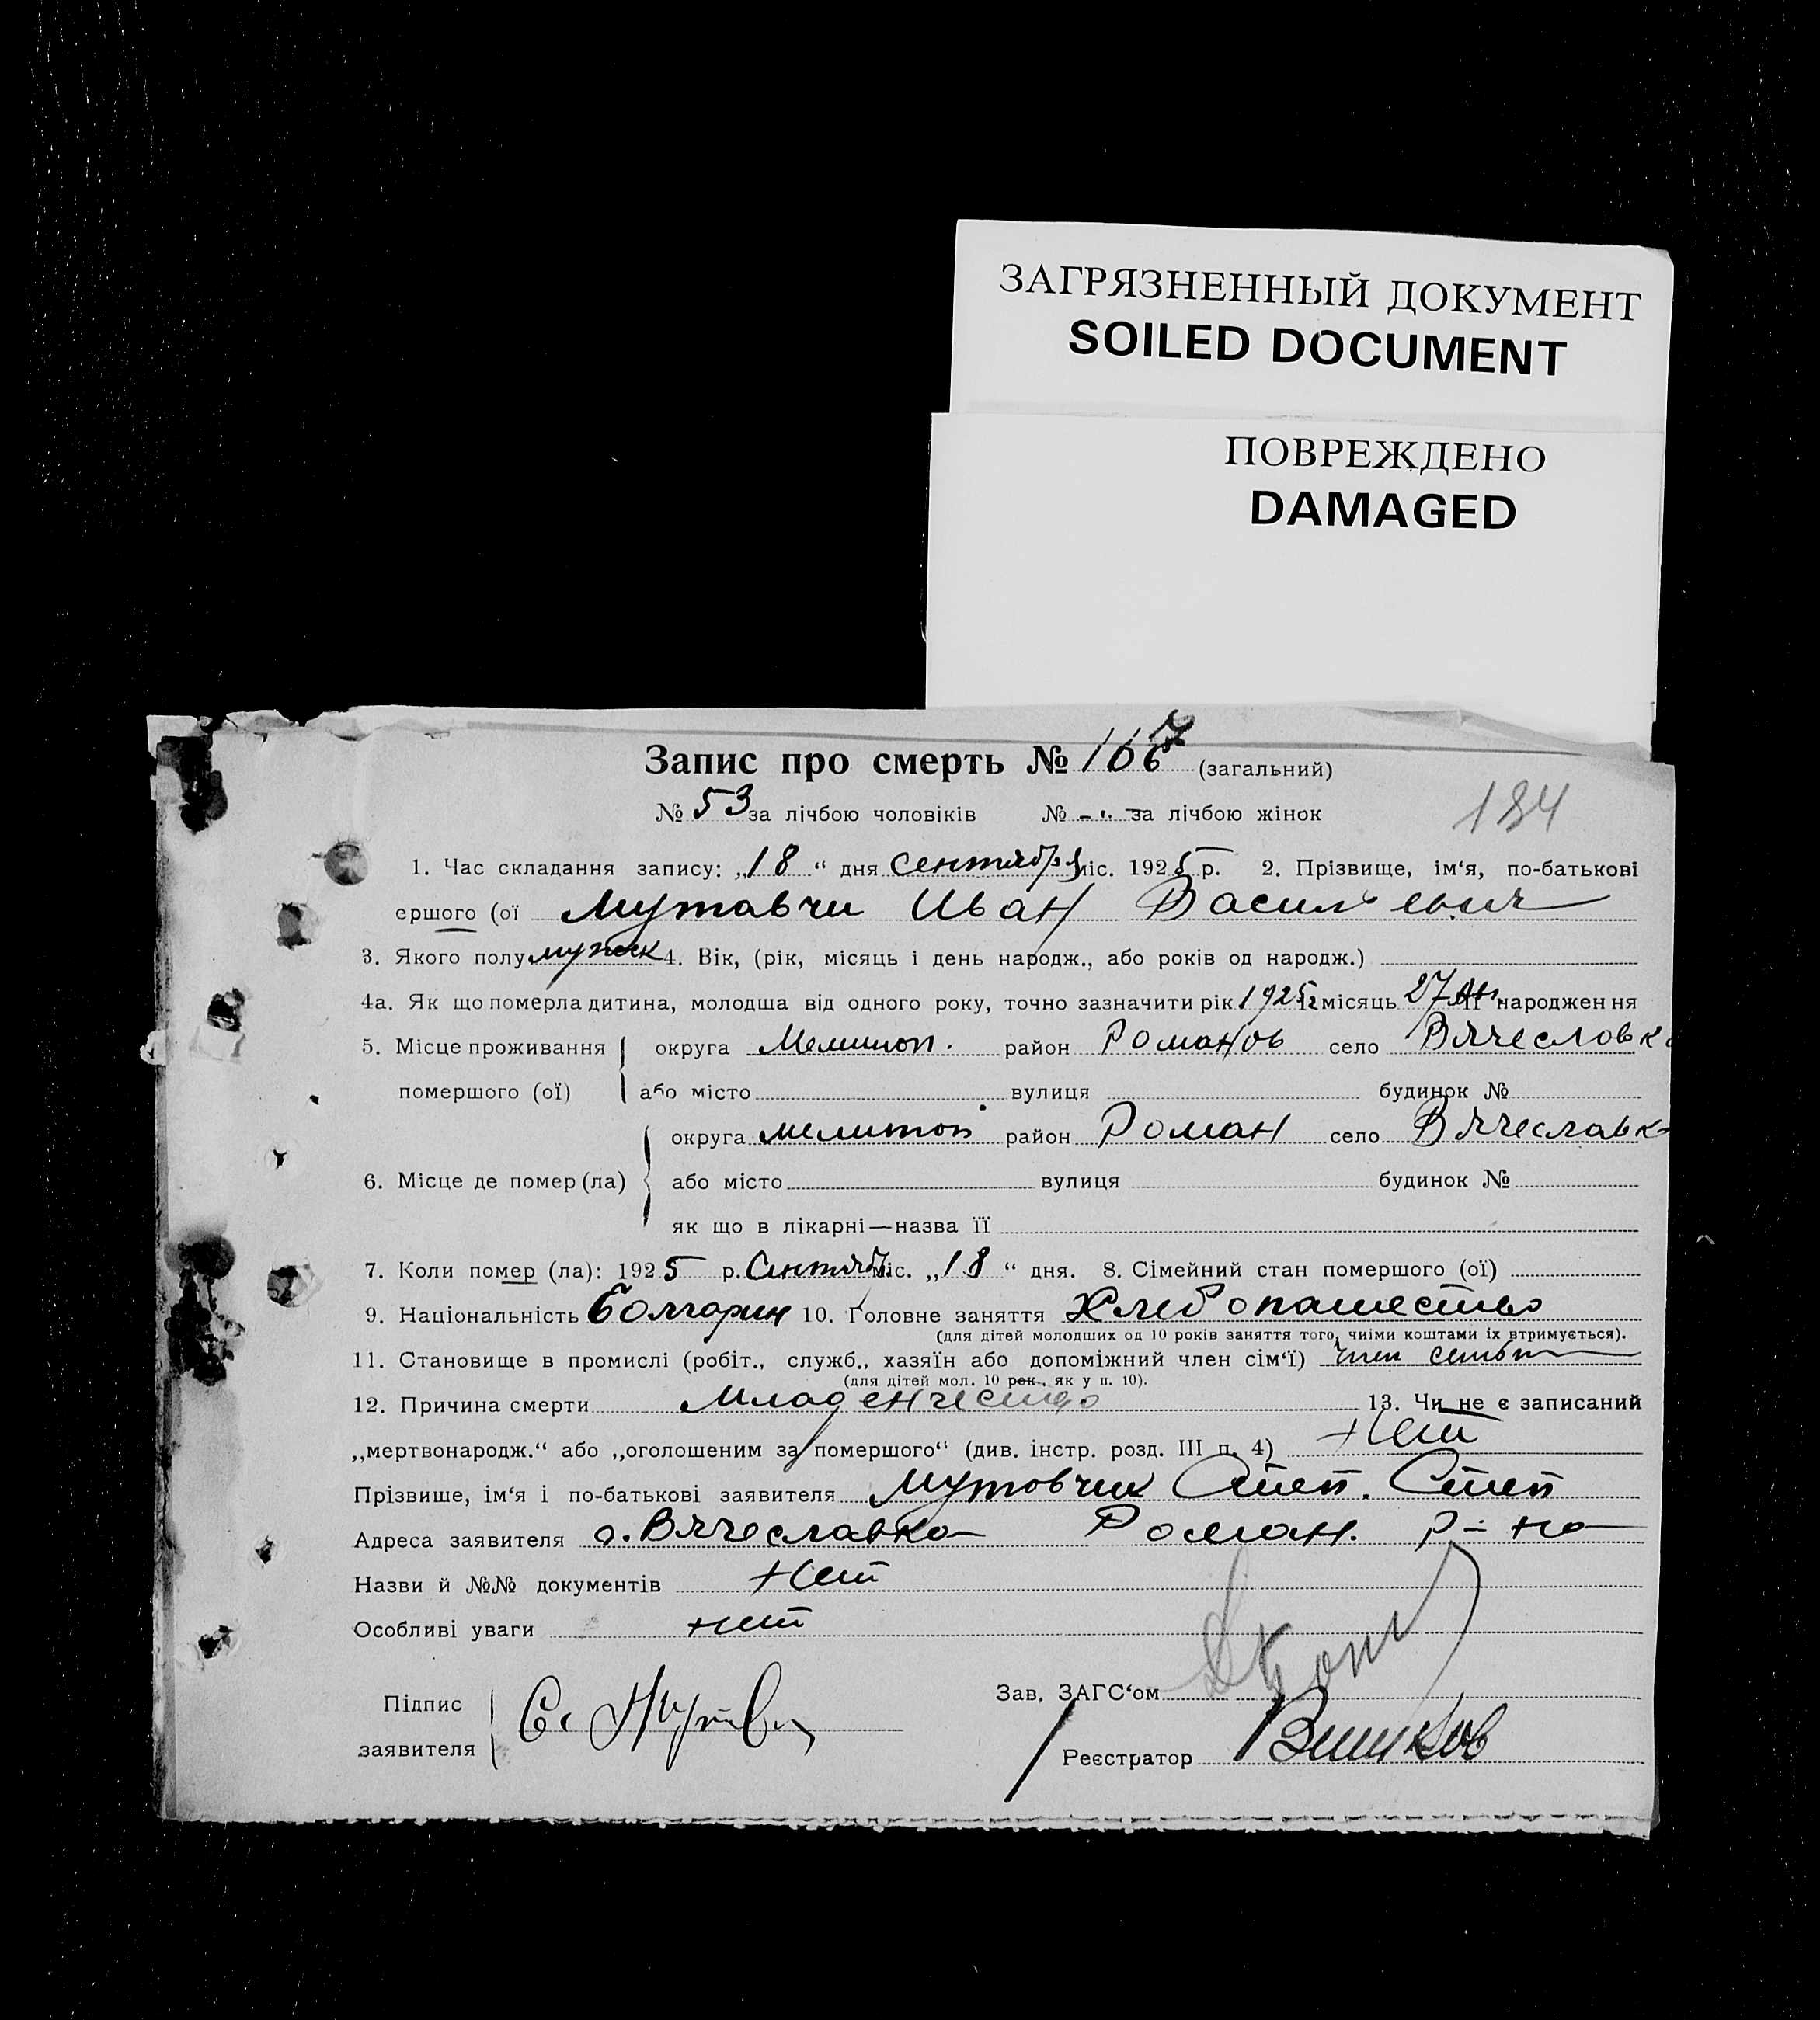 ЗАГРЯЗНЕННЫЙ ДОКУМЕНТ
SOILED DOCUMENT
ПОВРЕЖДЕНО
DAMAGED
Запис про смерть № (загальний)
№ 53 за лічбою чоловіків № - „ - за лічбою жінок
184
1. Час складання запису: „18“ дня сентября міс. 1925 р. 2. Прізвище, ім‘я, по-батькові
ершого (ої Мутавчи Иван Васильевич
3. Якого полу мужск 4. Вік, (рік, місяць і день народж., або років од народж.)
4а. Як що померла дитина, молодша від одного року, точно зазначити рік 1925 місяць 27 народження
5. Місце проживання округа Мелитоп. район Романов село Вячеславк
помершого (ої) або місто вулиця будинок №
округа мелитоп район Роман село Вячеславк
6. Місце де помер (ла) або місто вулиця будинок №
як що в лікарні—назва її
7. Коли помер (ла): 1925 р. Сентяб. міс. „18“ дня. 8. Сімейний стан помершого (ої)
9. Національність Болгарин 10. Головне заняття Хлебопашество
(для дітей молодших од 10 років заняття того, чиїми коштами їх втримується).
11. Становище в промислі (робіт., служб., хазяїн або допоміжний член сім‘ї) член семьи
(для дітей мол. 10 рок., як у п. 10).
12. Причина смерти Младенчество 13. Чи не є записаний
„мертвонародж.“ або „оголошеним за помершого“ (див. інстр. розд. III п. 4) нет
Прізвише, ім‘я і по-батькові заявителя Мутовчи Степ
Адреса заявителя с. Вячеславка Роман. р-на
Назви й №№ документів нет
Особливі уваги нет
Підпис
Зав. ЗАГС‘ом
заявителя
Реєстратор